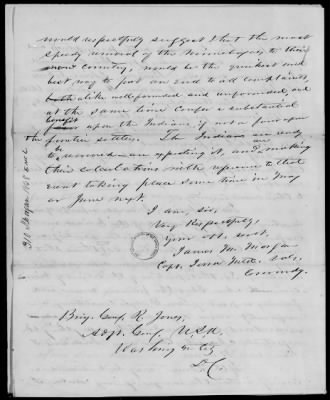 would respectfully suggest that the most
speedy removal of the Winnebagoes to their
new country, would be the quickest and
best way to put an end to all complaints,
both alike well founded and unfounded, and
at the same time confer a substantial
benefit upon the Indians if not a favor upon
the frontier settlers. The Indians are ready
to be removed - are expecting it, and are making
their calculations with reference to that
event taking place some time in May
or June next.
I am, sir,
Very Respectfully,
Your obt. servt.
James M. Morgan
Capt. Iowa Mtd. Vols,
Commdg.
Brig. Genl. R. Jones,
Adjt. Genl. U.S.A.
Washington City
D.C.